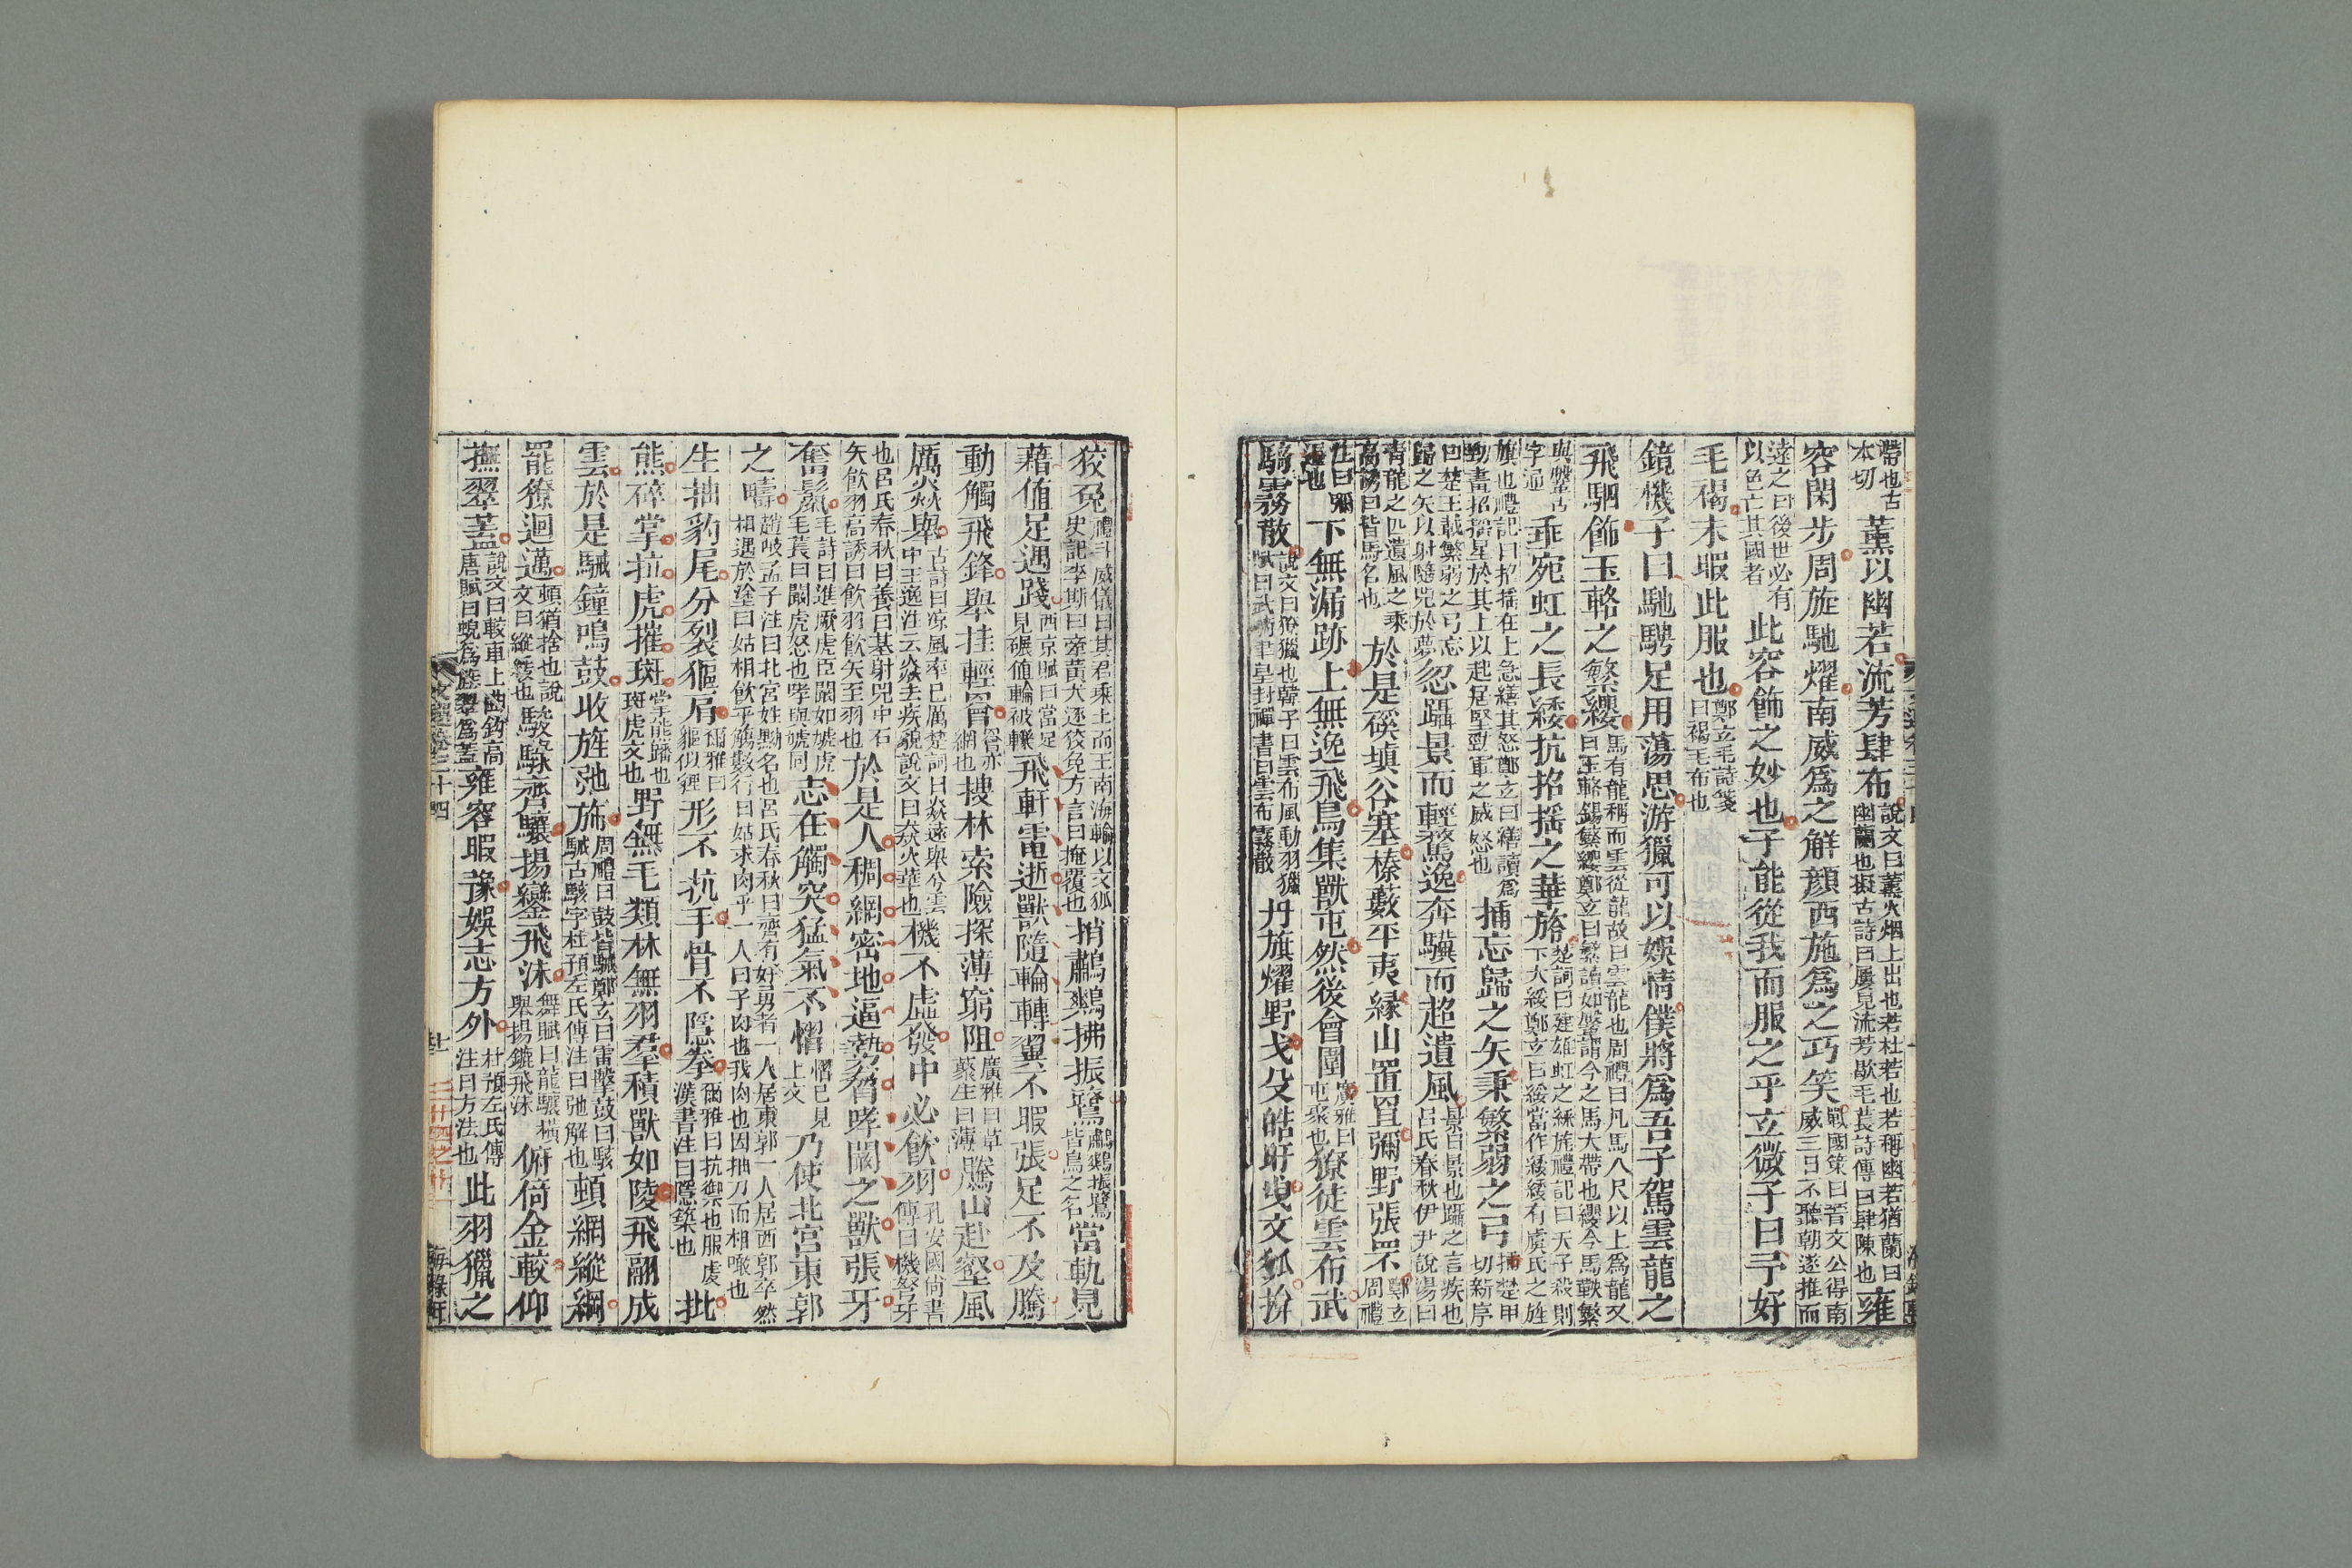 滯也古本切薰以幽若流芳肆布說文曰薰火烟上出也若杜若也若稱幽若猶蘭曰幽蘭也擬古詩曰屢見流芳歇毛萇詩傳曰肆陳也雍
容閑步周旋馳燿南威爲之解顏西施爲之巧笑戰國策曰晉文公得南威三日不聽朝遂推而
遠之曰後世必有以色亡其國者此容飾之妙也子能從我而服之乎玄微子曰予好
毛褐未暇此服也鄭玄毛詩箋曰褐毛布也
鏡機子曰馳騁足用蕩思游獵可以娛情僕將爲吾子駕雲龍之
飛駟飾玉輅之繁纓馬有龍稱而雲從龍故曰雲龍也周禮曰凡馬八尺以上爲龍又曰玉輅錫繁纓鄭玄曰繁讀如鞶謂今之馬大帶也纓今馬鞅繁
與鞶古字通垂宛虹之長緌抗招搖之華旍楚詞曰建雄虹之綵旄禮記曰天子殺則下大綏鄭玄曰綏當作緌緌有虞氏之旌
旗也禮記曰招搖在上急繕其怒鄭玄曰繕讀爲勁畫招搖星於其上以起居堅勁軍之威怒也捕忘歸之矢秉繁弱之弓捕楚甲切新序
曰楚王載繁弱之弓忘歸之矢以射隨兕於夢忽躡景而輕騖逸奔驥而超遺風景日景也躡之言疾也呂氏春秋伊尹說湯曰
青龍之匹遺風之乘高誘曰皆馬名也於是磎填谷塞榛藪平夷緣山置罝彌野張罘鄭玄周禮
注曰彌遍也下無漏跡上無逸飛鳥集獸屯然後會圍廣雅曰屯聚也獠徒雲布武
騎霧散說文曰獠獵也韓子曰雲布風動羽獵賦曰武騎聿皇封禪書曰雲布霧散丹旗燿野戈殳皓旰曳文狐揜
狡兔禮斗威儀曰其君乘土而王南海輸以文狐史記李斯曰牽黃犬逐狡兔方言曰掩覆也捎鷫鷞拂振鷺鷫鷞振鷺皆鳥之名當軌見
藉值足遇踐西京賦曰當足見碾值輪被轢飛軒電逝獸隨輪轉翼不暇張足不及騰
動觸飛鋒舉挂輕罾罾亦網也搜林索險探薄窮阻廣雅曰草藂生曰薄騰山赴壑風
厲焱舉古詩曰凉風率已厲楚詞曰焱遠舉兮雲中王逸注云焱去疾貌說文曰焱火華也機不虛發中必飮羽孔安國尙書傳曰機弩牙
也呂氏春秋曰養由基射兕中石矢飮羽高誘曰飮羽飮矢至羽也於是人稠網密地逼勢脅哮闞之獸張牙
奮鬣毛詩曰進厥虎臣闞如虓虎毛萇曰闞虎怒也哮與虓同志在觸突猛氣不慴慴已見上文乃使北宮東郭
之疇趙岐孟子注曰北宮姓黝名也呂氏春秋曰齊有好勇者一人居東郭一人居西郭卒然相遇於塗曰姑相飮乎觴數行曰姑求肉乎一人曰子肉也我肉也因抽刀而相噉也
生抽豹尾分裂貙肩爾雅曰貙似貍形不抗手骨不隱拳爾雅曰抗禦也服虔漢書注曰隱築也批
熊碎掌拉虎摧斑掌熊蹯也斑虎文也野無毛類林無羽羣積獸如陵飛翮成
雲於是駴鐘鳴鼓收旌弛旆周禮曰鼓皆駴鄭玄曰雷擊鼓曰駭駴古駭字杜預左氏傳注曰弛解也頓網縱綱
罷獠迴邁頓猶捨也說文曰縱緩也駿騄齊驤揚鑾飛沫舞賦曰龍驤橫舉揚鑣飛沫俯倚金較仰
撫翠蓋說文曰較車上曲鉤高唐賦曰蜺爲旌翠爲蓋雍容暇豫娛志方外杜預左氏傳注曰方法也此羽獵之
文選卷三十四　海錄軒